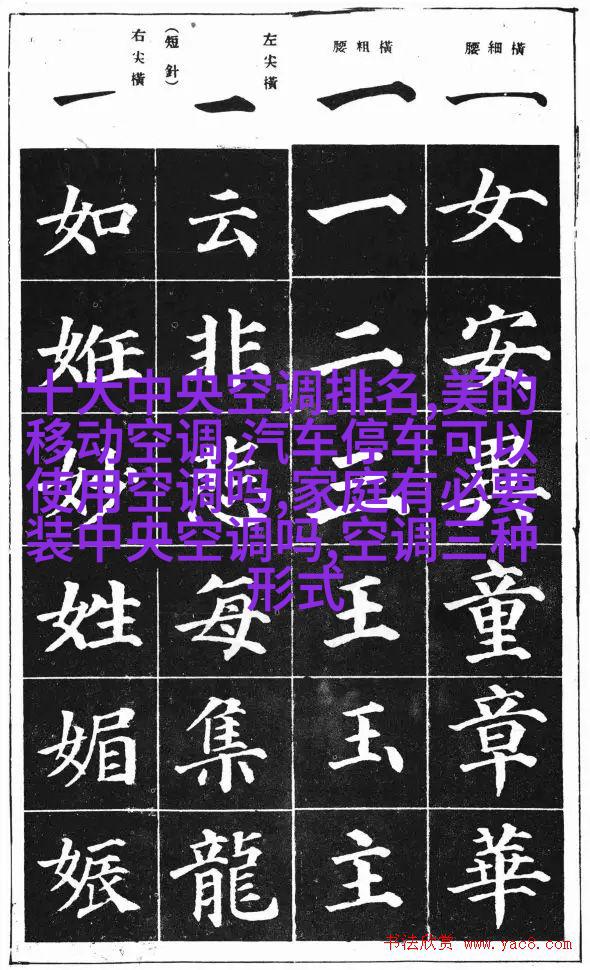 腰細橫
一
女
安
童
章
華
腰粗橫
一
一
二
三
王
玉
主
左尖橫
(短針)
一
云
非
每
集
龍
右尖橫
一
如
姙
妙
姓
媚
娠
十大中央空调排名,美的
移动空调,汽车停车可以
使用空调吗,家庭有必要
装中央空调吗,空调三种
形式
书法欣赏 www.yac8.com